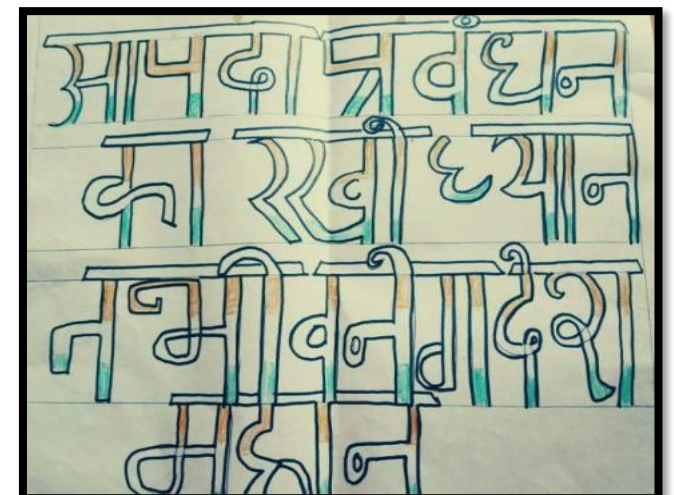 आपदा प्रवंधन
का रखो ध्यान
तभी वनेगा देश
महान